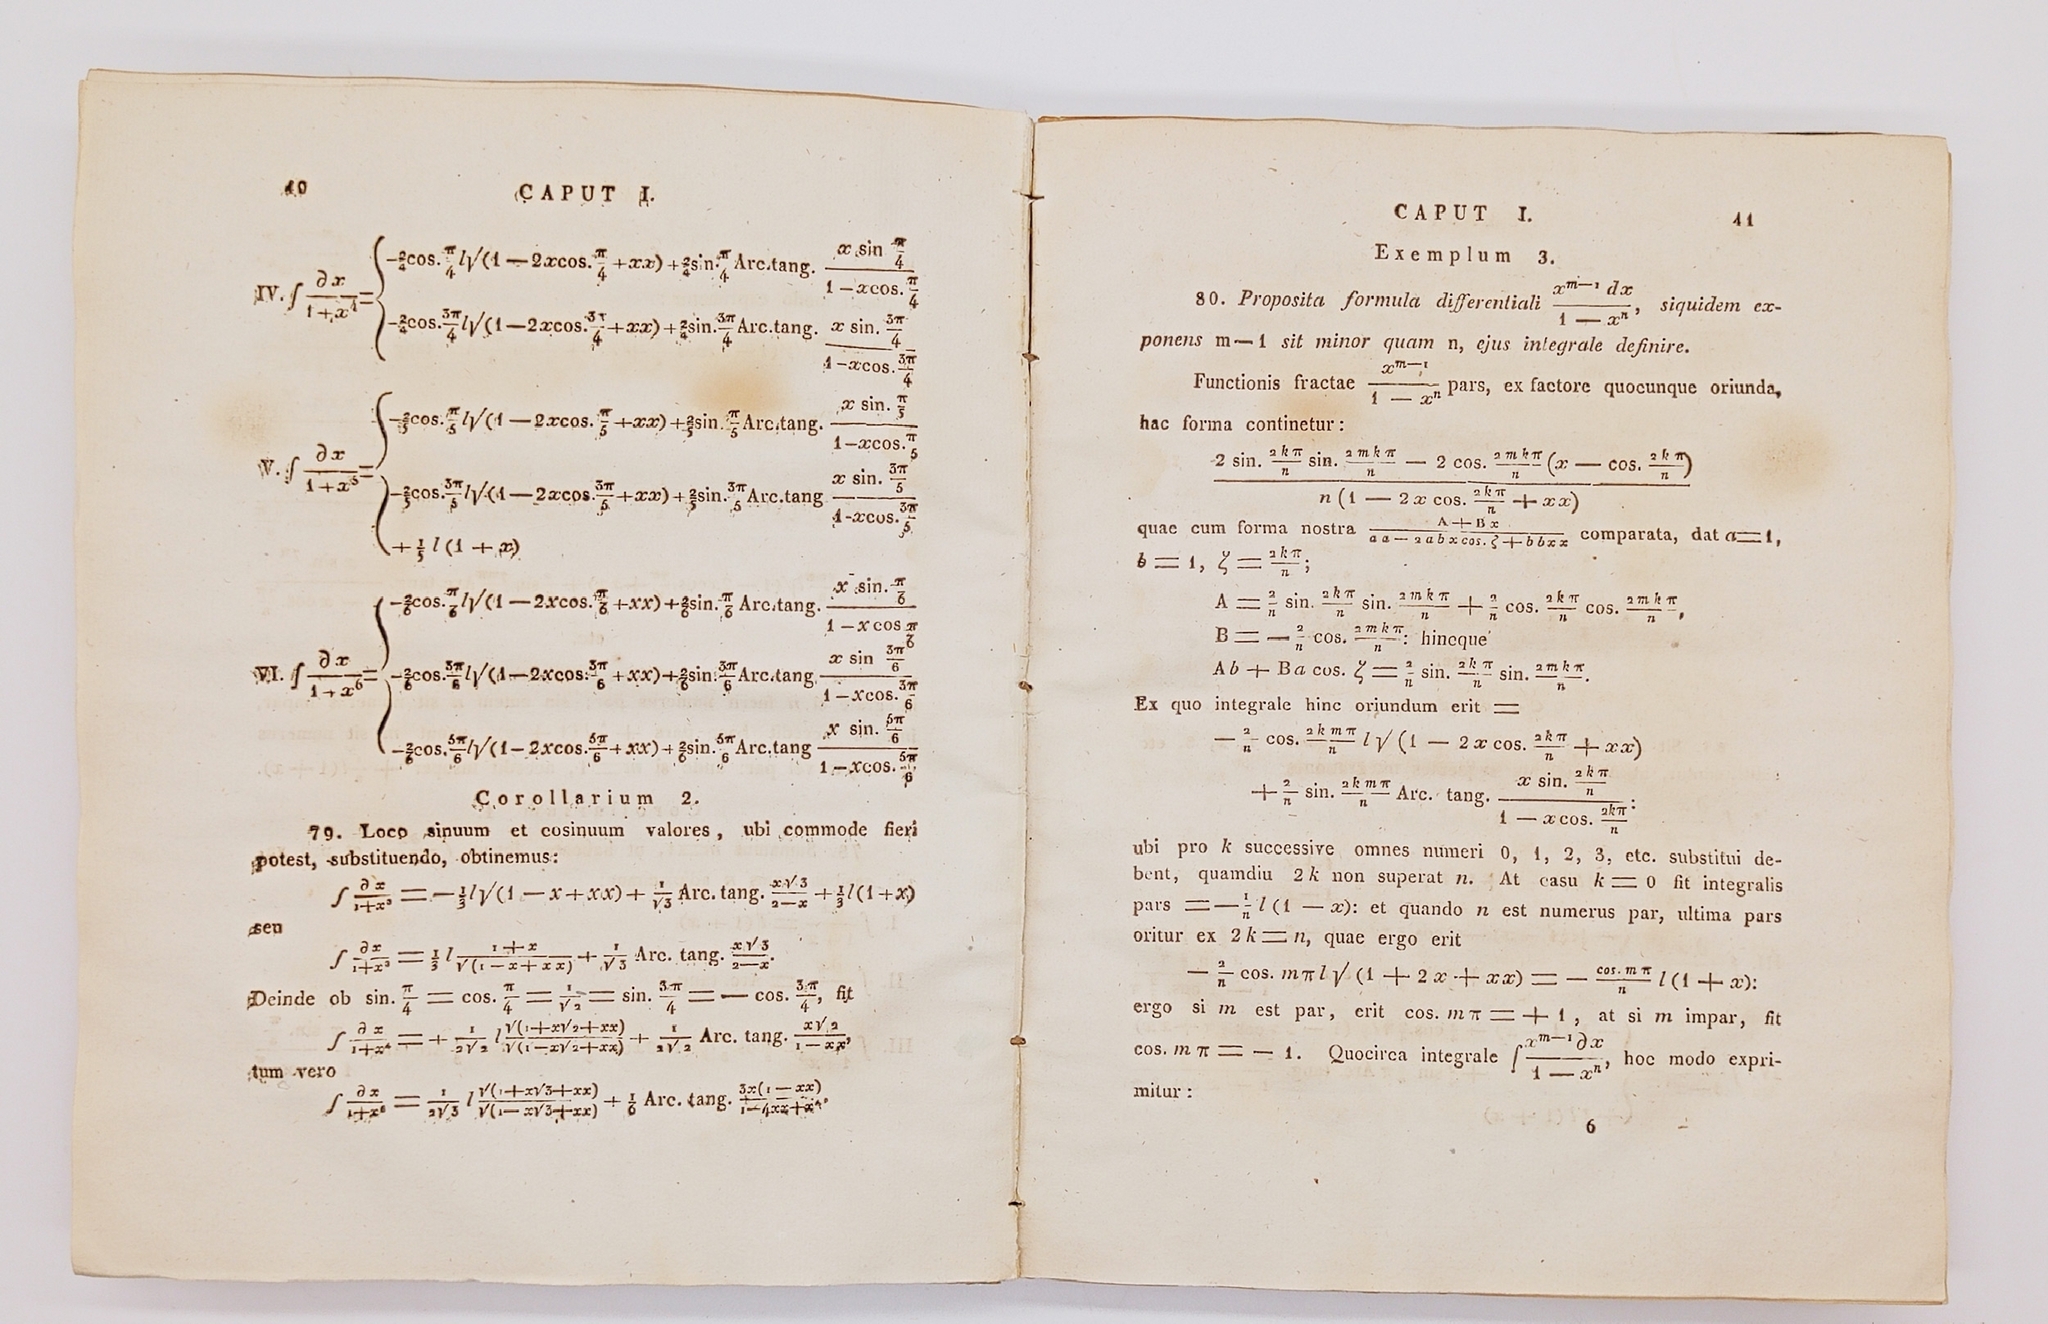 40 CAPUT I.
IV. ∫ ∂x/(1+x⁴) = { −2/4 cos. π/4 l√(1−2x cos. π/4 + xx) + 2/4 sin. π/4 Arc. tang. x sin π/4 / 1−x cos. π/4
−2/4 cos. 3π/4 l√(1−2x cos. 3π/4 + xx) + 2/4 sin. 3π/4 Arc. tang. x sin. 3π/4 / 1−x cos. 3π/4
V. ∫ ∂x/(1+x⁵) = { −2/5 cos. π/5 l√(1−2x cos. π/5 + xx) + 2/5 sin. π/5 Arc. tang. x sin. π/5 / 1−x cos. π/5
−2/5 cos. 3π/5 l√(1−2x cos. 3π/5 + xx) + 2/5 sin. 3π/5 Arc. tang x sin. 3π/5 / 1-x cos. 3π/5
+ 1/5 l (1 + x)
VI. ∫ ∂x/(1+x⁶) = { −2/6 cos. π/6 l√(1−2x cos. π/6 + xx) + 2/6 sin. π/6 Arc. tang. x sin. π/6 / 1−x cos π/6
−2/6 cos. 3π/6 l√(1−2x cos. 3π/6 + xx) + 2/6 sin. 3π/6 Arc. tang x sin 3π/6 / 1−x cos. 3π/6
−2/6 cos. 5π/6 l√(1−2x cos. 5π/6 + xx) + 2/6 sin. 5π/6 Arc. tang x sin. 5π/6 / 1−x cos. 5π/6
Corollarium 2.
79. Loco sinuum et cosinuum valores, ubi commode fieri
potest, substituendo, obtinemus:
∫ ∂x/(1+x³) = − 1/3 l√(1 − x + xx) + 1/√3 Arc. tang. x√3/(2−x) + 1/3 l (1+x)
seu
∫ ∂x/(1+x³) = 1/3 l (1+x)/√(1−x+xx) + 1/√3 Arc. tang. x√3/(2−x).
Deinde ob sin. π/4 = cos. π/4 = 1/√2 = sin. 3π/4 = − cos. 3π/4, fit
∫ ∂x/(1+x⁴) = + 1/(2√2) l √(1+x√2+xx)/√(1−x√2+xx) + 1/(2√2) Arc. tang. x√2/(1−xx),
tum vero
∫ ∂x/(1+x⁶) = 1/(2√3) l √(1+x√3+xx)/√(1−x√3+xx) + 1/6 Arc. tang. 3x(1−xx)/(1−4xx+x⁴).
CAPUT I. 41
Exemplum 3.
80. Proposita formula differentiali x^{m−1} dx/(1 − xⁿ), siquidem ex-
ponens m−1 sit minor quam n, ejus integrale definire.
Functionis fractae x^{m−1}/(1 − xⁿ) pars, ex factore quocunque oriunda,
hac forma continetur:
2 sin. 2kπ/n sin. 2mkπ/n − 2 cos. 2mkπ/n (x − cos. 2kπ/n) / n (1 − 2x cos. 2kπ/n + xx)
quae cum forma nostra (A + Bx)/(aa − 2abx cos. ζ + bbxx) comparata, dat a = 1,
b = 1, ζ = 2kπ/n;
A = 2/n sin. 2kπ/n sin. 2mkπ/n + 2/n cos. 2kπ/n cos. 2mkπ/n,
B = − 2/n cos. 2mkπ/n: hincque
Ab + Ba cos. ζ = 2/n sin. 2kπ/n sin. 2mkπ/n.
Ex quo integrale hinc oriundum erit =
− 2/n cos. 2kmπ/n l√(1 − 2x cos. 2kπ/n + xx)
+ 2/n sin. 2kmπ/n Arc. tang. x sin. 2kπ/n / 1 − x cos. 2kπ/n:
ubi pro k successive omnes numeri 0, 1, 2, 3, etc. substitui de-
bent, quamdiu 2k non superat n. At casu k = 0 fit integralis
pars = − 1/n l (1 − x): et quando n est numerus par, ultima pars
oritur ex 2k = n, quae ergo erit
− 2/n cos. mπ l√(1 + 2x + xx) = − cos. mπ/n l (1 + x):
ergo si m est par, erit cos. mπ = + 1, at si m impar, fit
cos. mπ = − 1. Quocirca integrale ∫ x^{m−1} ∂x/(1 − xⁿ), hoc modo expri-
mitur:
6